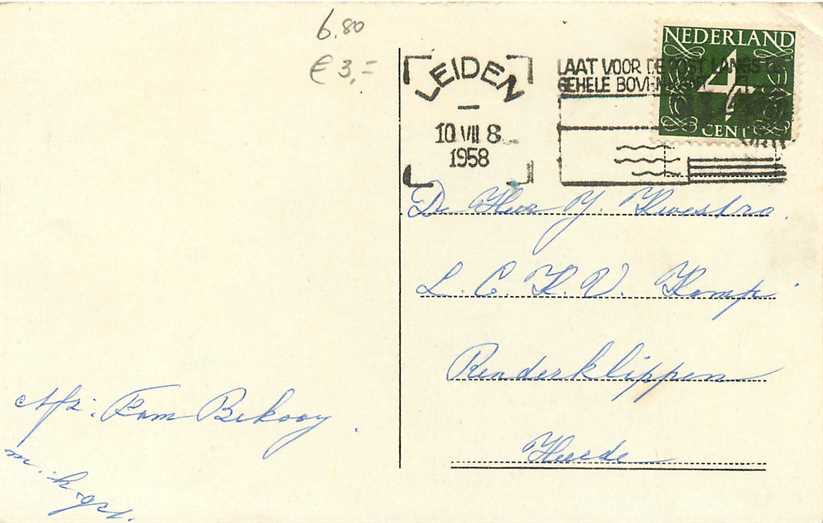 6.80
€ 3,=
LEIDEN
10 VII 8
1958
LAAT VOOR DE POST LANGS DE
GEHELE BOVEN
NEDERLAND
4
CENT
De Heer Y. Kweestra.
L. C. K. V. Kamp
Renderklippen
Heerde
Afz: Fam Bekooy.
m. h. gr.